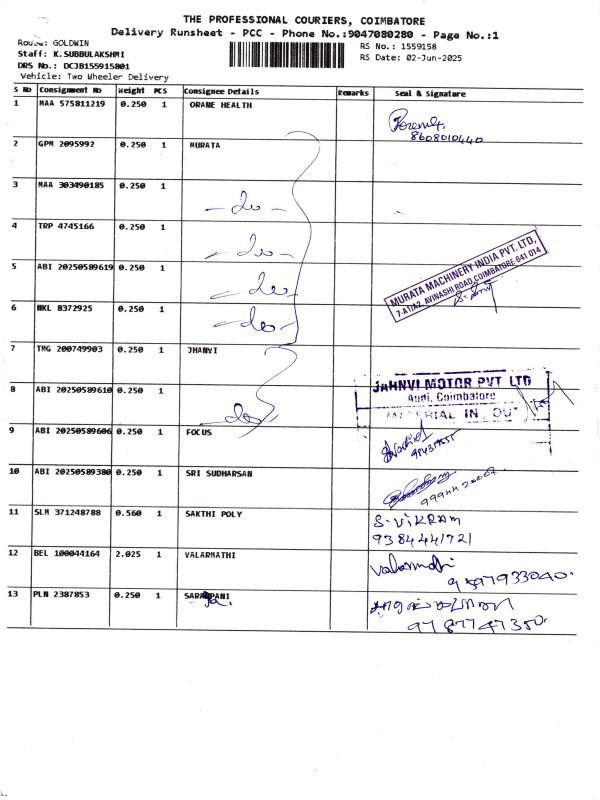 THE PROFESSIONAL COURIERS, COIMBATORE
Delivery Runsheet - PCC - Phone No.:9047080280 - Page No.:1
Route: GOLDWIN
RS No.: 1559158
Staff: K.SUBBULAKSHMI
RS Date: 02-Jun-2025
DRS No.: DCJB155915801
Vehicle: Two Wheeler Delivery
S No Consignment No Weight PCS Consignee Details Remarks Seal & Signature
1 MAA 575811219 0.250 1 ORANE HEALTH
8608010440
2 GPM 2095992 0.250 1 MURATA
3 MAA 303490185 0.250 1 -do-
4 TRP 4745166 0.250 1 -do-
5 ABI 20250589619 0.250 1 -do-
MURATA MACHINERY INDIA PVT. LTD,
7-A1/A2, AVINASHI ROAD, COIMBATORE-641 014
6 NKL 8372925 0.250 1 -do-
7 TMG 200749903 0.250 1 JHANVI
JAHNVI MOTOR PVT LTD
Audi, Coimbatore
MATERIAL IN / OUT
8 ABI 20250589610 0.250 1 -do-
9 ABI 20250589606 0.250 1 FOCUS
10 ABI 20250589380 0.250 1 SRI SUDHARSAN
11 SLM 371248788 0.560 1 SAKTHI POLY
S. VIKRAM
9384441721
12 BEL 100044164 2.025 1 VALARMATHI
Valarmathi
13 PLN 2387853 0.250 1 SARAPANI
9787747350